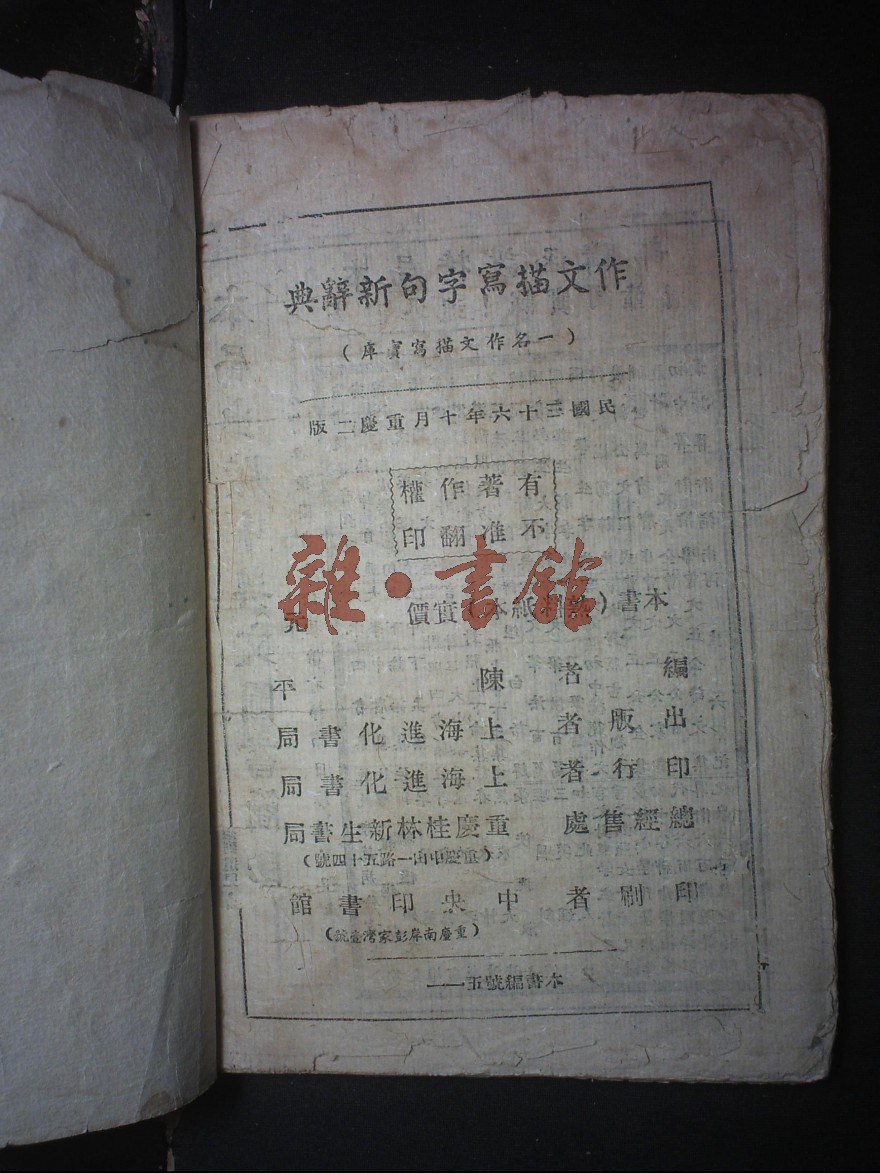 作文描寫字句新辭典
（一名作文描寫寶庫）
民國三十六年十月重慶二版
有著作權
不准翻印
雜·書館
本書（熟料紙本）實價 元
編者 陳 平
出版者 上海進化書局
印行者 上海進化書局
總經售處 重慶桂林新生書局
（重慶中山一路五十四號）
印刷者 中央印書館
（重慶南岸彭家灣臺號）
本書編號五一一